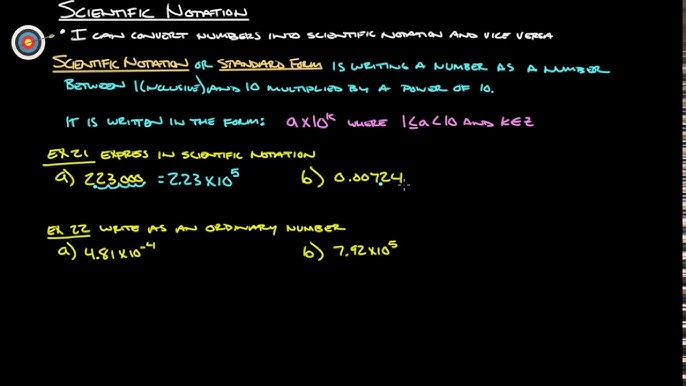 SCIENTIFIC NOTATION
• I CAN CONVERT NUMBERS INTO SCIENTIFIC NOTATION AND VICE VERSA
SCIENTIFIC NOTATION OR STANDARD FORM IS WRITING A NUMBER AS A NUMBER
BETWEEN 1(INCLUSIVE) AND 10 MULTIPLIED BY A POWER OF 10.
IT IS WRITTEN IN THE FORM: a×10ᵏ WHERE 1≤a<10 AND K∈Z
EX 21 EXPRES IN SCIENTIFIC NOTATION
a) 223,000 = 2.23×10⁵ b) 0.00724
EX 22 WRITE AS AN ORDINARY NUMBER
a) 4.81×10⁻⁴ b) 7.92×10⁵